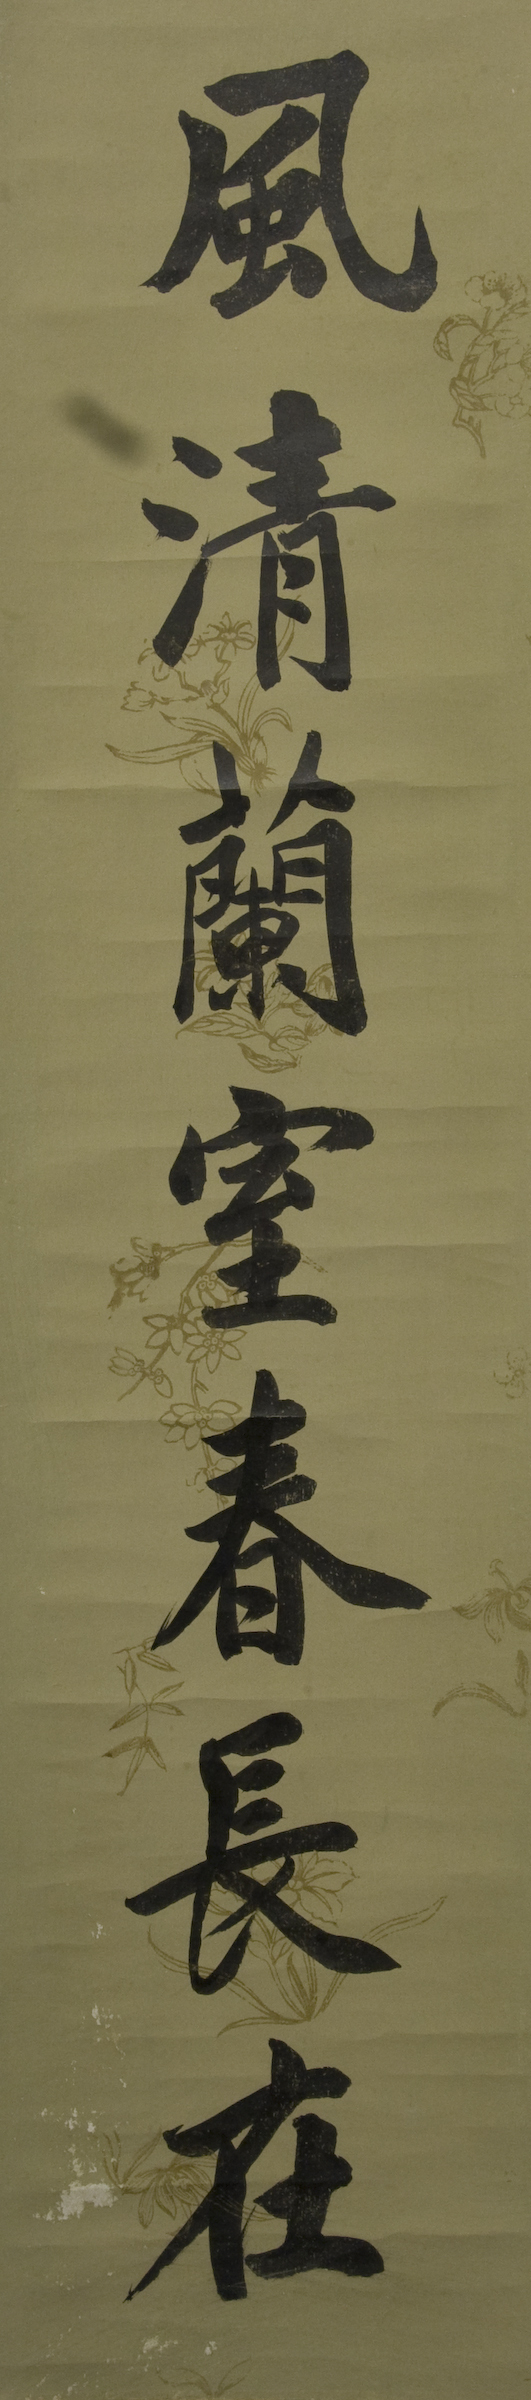 風清蘭室春長在